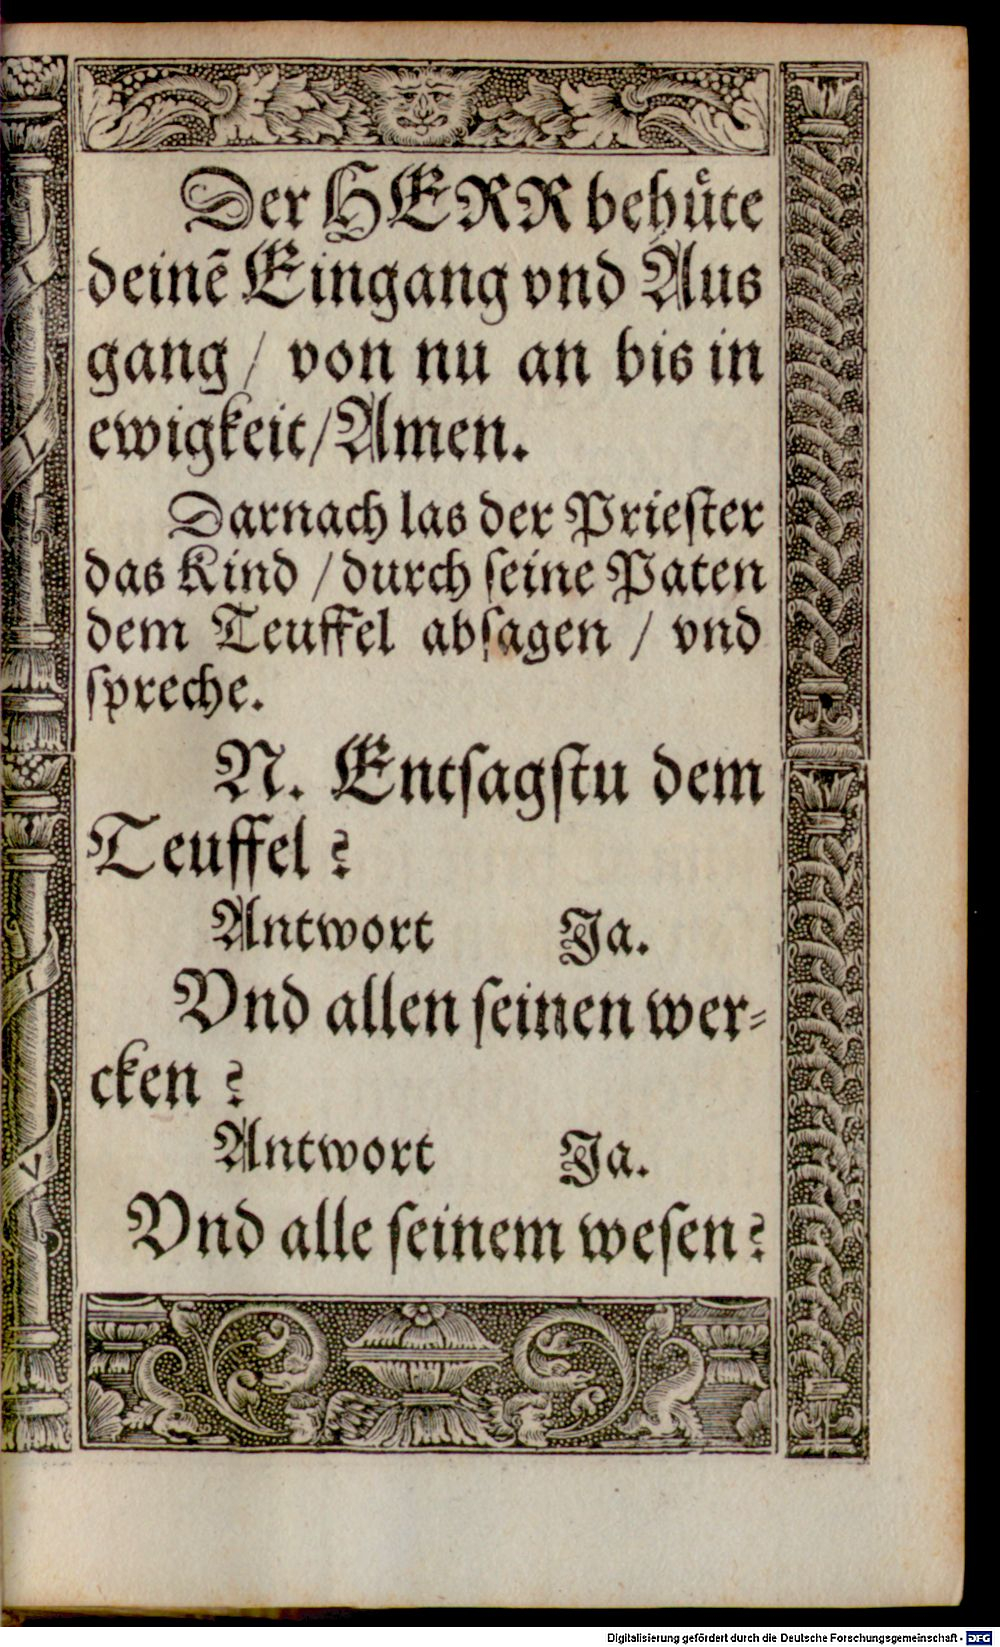 Der HERR behuͤte
deinē Eingang vnd Aus
gang / von nu an bis in
ewigkeit / Amen.
Darnach las der Prieſter
das Kind / durch ſeine Paten
dem Teuffel abſagen / vnd
ſpreche.
N. Entſagſtu dem
Teuffel?
Antwort Ja.
Vnd allen ſeinen wer⸗
cken?
Antwort Ja.
Vnd alle ſeinem weſen?
Digitalisierung gefördert durch die Deutsche Forschungsgemeinschaft - DFG